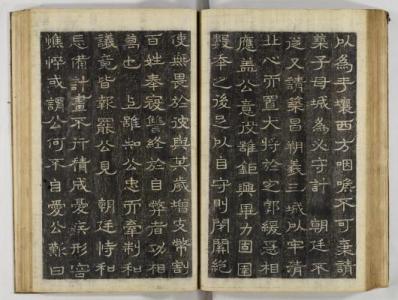 以為平壤西方咽喉不可棄請
築子母城為必守計 朝廷不
從又請築昌朔義三城以牢清
北心而置大將於之郭緩急相
應蓋公意彼雖鉅興畢力固圉
之後已以自守則閉關絕
使無畏於彼與其歲增支幣割
百姓奉寇讐終於自弊者功相
萬也上雖知公忠而牽制和
議竟皆報罷公見 朝廷恃和
忘備計畫不行積成憂形容
憔悴或謂公何不自愛公歎曰